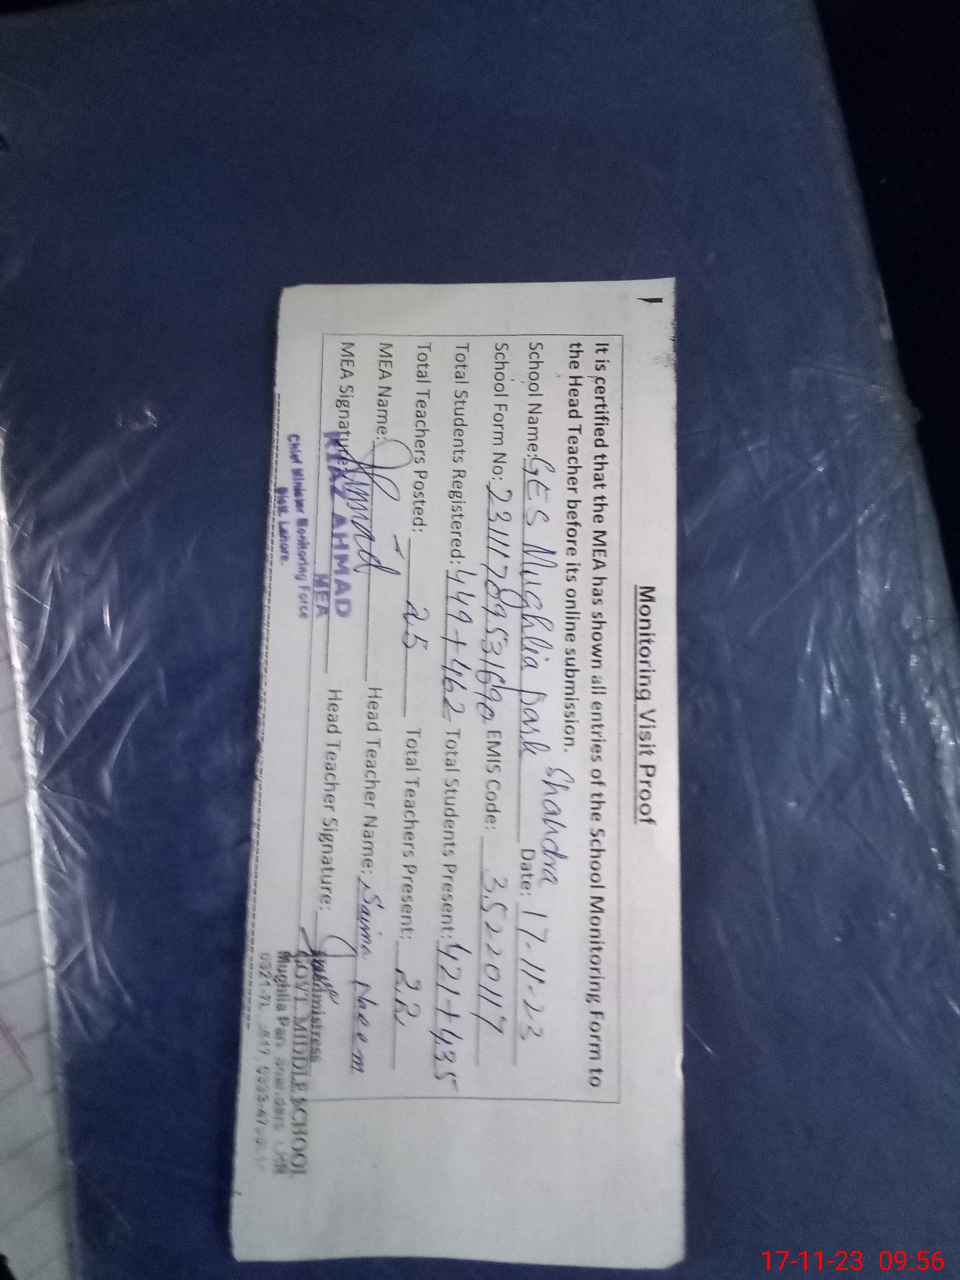 Monitoring Visit Proof
It is certified that the MEA has shown all entries of the School Monitoring Form to
the Head Teacher before its online submission.
School Name: GES Mughlia Park Shahdra Date: 17-11-23
School Form No: EMIS Code: 35220117
Total Students Registered: 449+462 Total Students Present: 421+435
Total Teachers Posted: 25 Total Teachers Present: 22
MEA Name: Head Teacher Name: Saima Naeem
MEA Signature: Head Teacher Signature:
RIAZ AHMAD
MEA
Chief Minister Monitoring Force
Distt. Lahore.
Headmistress
GOVT. MIDDLE SCHOOL
Mughlia
17-11-23 09:56